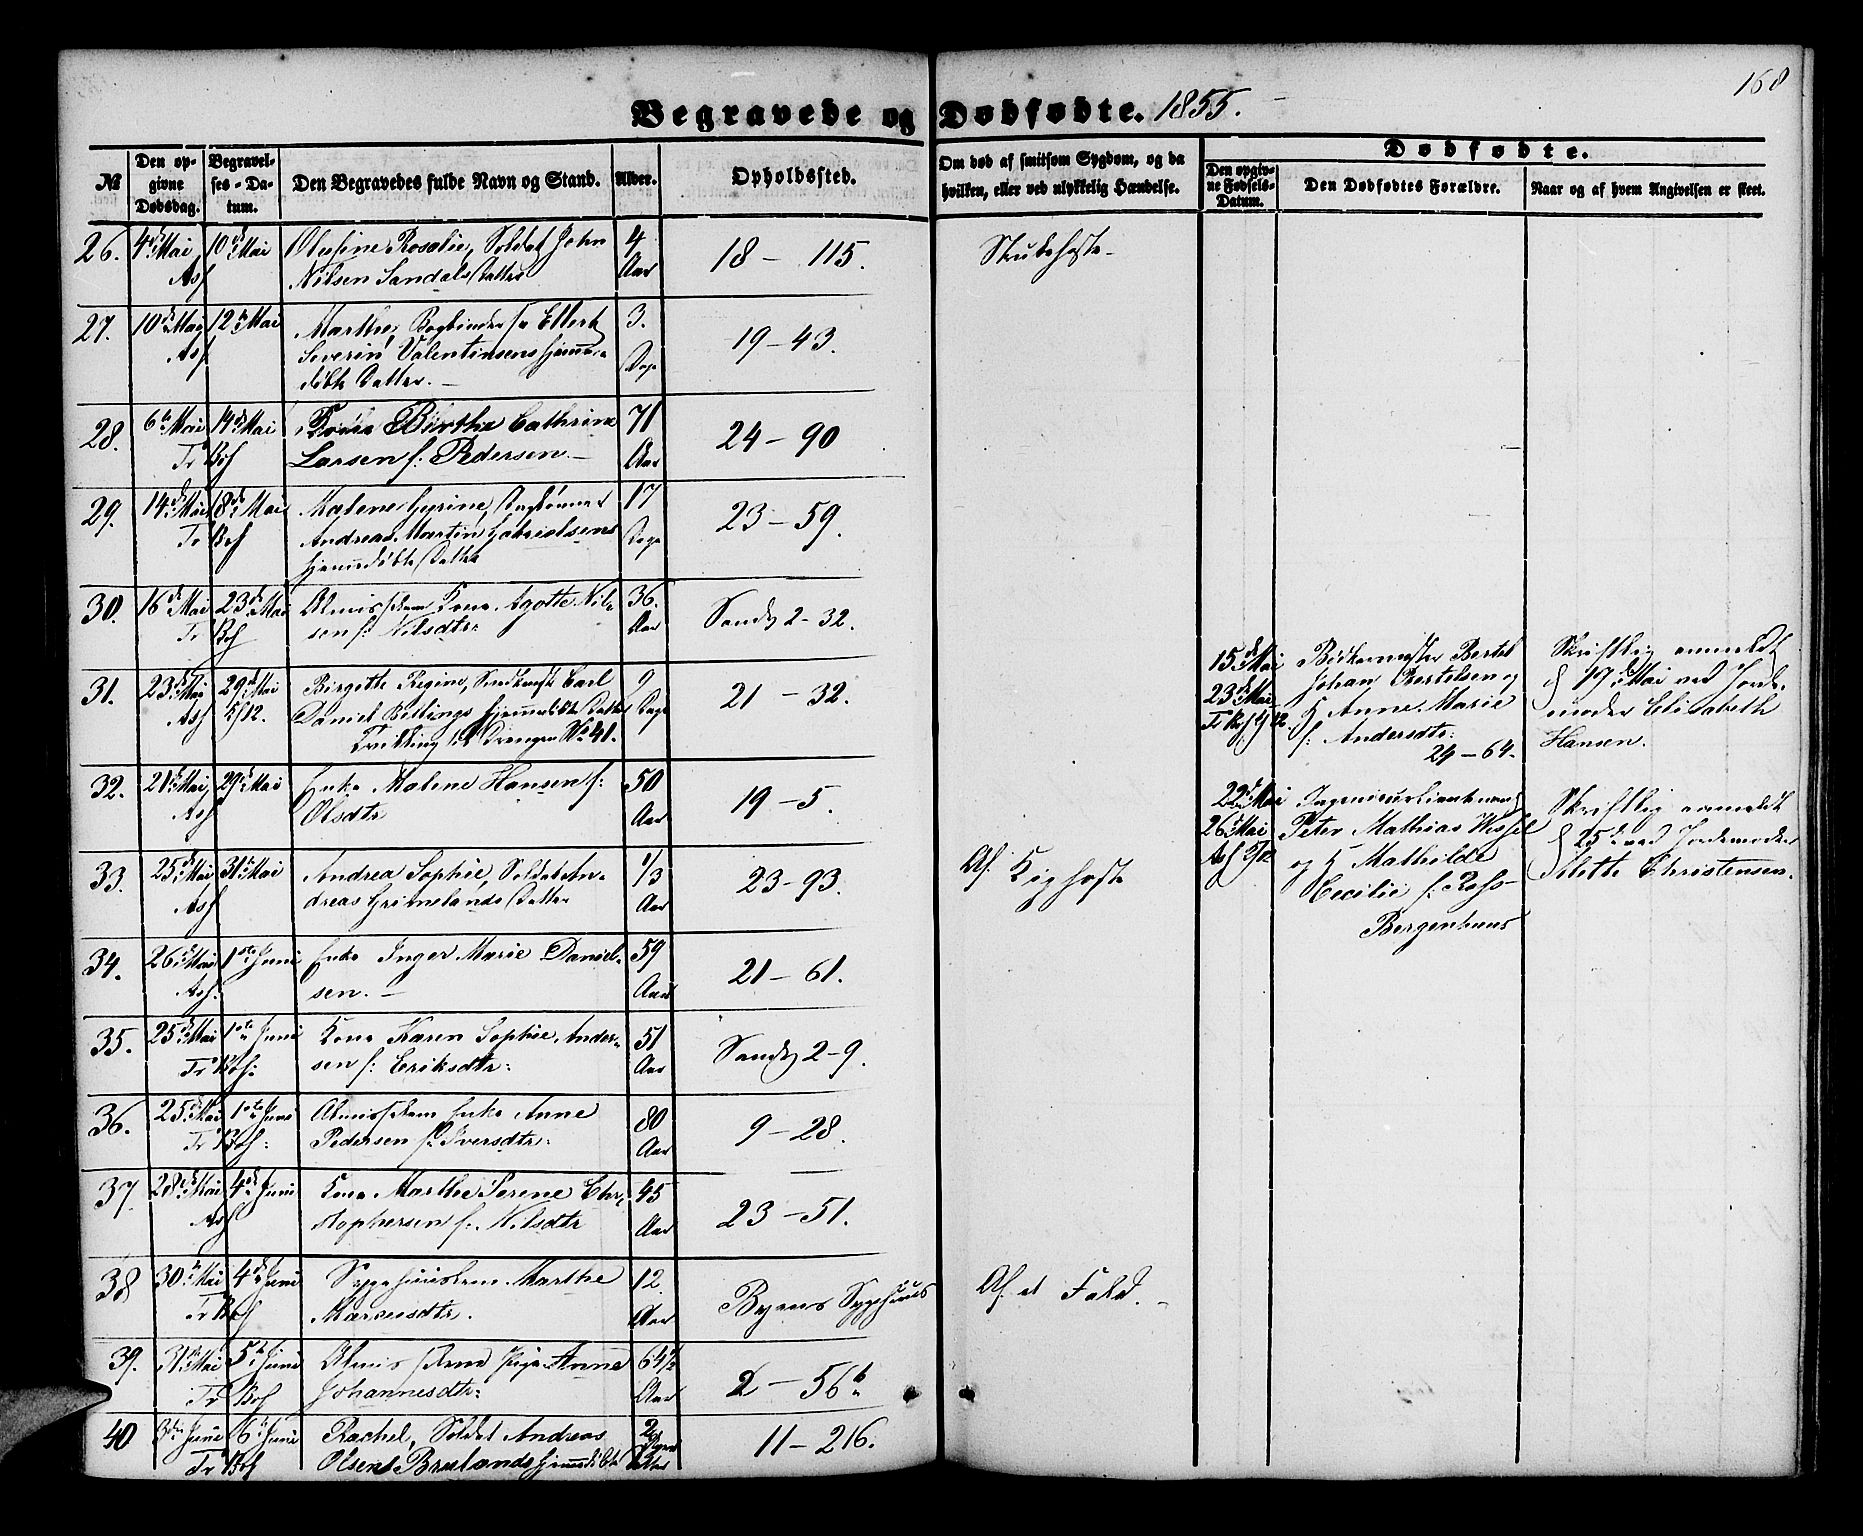 168
Begravede og Dødfødte. 1855.
No
Den opgivne Dødsdag.
Begravelses-Datum.
Den Begravedes fulde Navn og Stand.
Alder.
Opholdssted.
Om død af smitsom Sygdom, og da hvilken, eller ved ulykkelig Hændelse.
Dødfødte.
Den opgivne Fødsels-Datum.
Den Dødfødtes Forældre.
Naar og af hvem Angivelsen er skeet.
26. 4de Mai 10de Mai Olufine Rosalie, Soldat John 4
Asf Nilsen Sandals Datter Aar 18 - 115. Strubehoste -
27. 10de Mai 12te Mai Marthe, Bogbinder Ellert 3.
Asf Severin Valentinsens hjemme- Dage 19 - 43.
døbte Datter. -
28. 6te Mai 14de Mai Kone Birthe Cathrine 71
Tr Bøf Larsen f: Pedersen. - Aar 24 - 90
29. 14de Mai 18de Mai Malene Gurine, Daglønner 17
Tr Bøf Andreas Martin Gabrielsens Dage 23 - 59.
hjemmedøbte Datter
30. 16de Mai 23de Mai Almisselem Kone Agotte Nil- 36.
Tr Bøf sen f: Nilsdtr: Aar Sandv 2 - 32.
31. 23de Mai 29de Mai Birgitte Regine, Carl 9
Asf 5/12. Daniel hjemmedøbte Datter Dage 21 - 32.
Tvilling til Drengen No 41.
32. 21de Mai 29de Mai Enke Malene Hansen f: 50
Asf Olsdtr Aar 19 - 5.
33. 25de Mai 31te Mai Andrea Sophie, Soldat An- 1/3
Asf dreas Grimelands Datter Aar 23 - 93. Af Kighoste
34. 26de Mai 1ste Juni Enke Inger Marie Daniel- 59
Asf. sen. - Aar 21 - 61.
35. 25de Mai 1ste Juni Kone Karen Sophie Ander- 51
Tr Bøf: sen f: Eriksdtr: Aar Sandv 2 - 9.
36. 25de Mai 1ste Juni Almisselem Enke Anne 80
Tr Bøf: Pedersen f: Iversdtr: Aar 9 - 28.
37. 28de Mai 4de Juni Kone Marthe Serene Chri- 45
Asf stophersen f: Nilsdtr Aar 23 - 51.
38 30te Mai 4de Juni Sygehuuslem Marthe 12.
Tr Bøf Marcusdtr. Aar Byens Sygehuus Af et Fald. -
39. 31te Mai 5te Juni Almisselem Pige Anne 64 1/2
Tr Bøf Johannesdtr: Aar 2 - 56b
40 3die Juni 6te Juni Rachel, Soldat Andreas 2
Tr Bøf Olsens Brulands hjemmedøbte Datter 11 - 216.
15de Mai Bødkermester Bertel
23de Mai Johan Bertelsen og
Tr Bøf 9/12 K Anne Marie
f: Andersdtr:
24 - 64.
Skriftlig anmeldt
d 19de Mai ved Jorde-
moder Elisabeth
Hansen.
22de Mai Ingenieurlieutenant
26de Mai Peter Mathias Wessel
Asf 5/12 og K Mathilde
Cecilie f: Ross -
Bergenhuus
Skriftlig anmeldt
d 25de ved Jordemoder
Iletta Christensen.